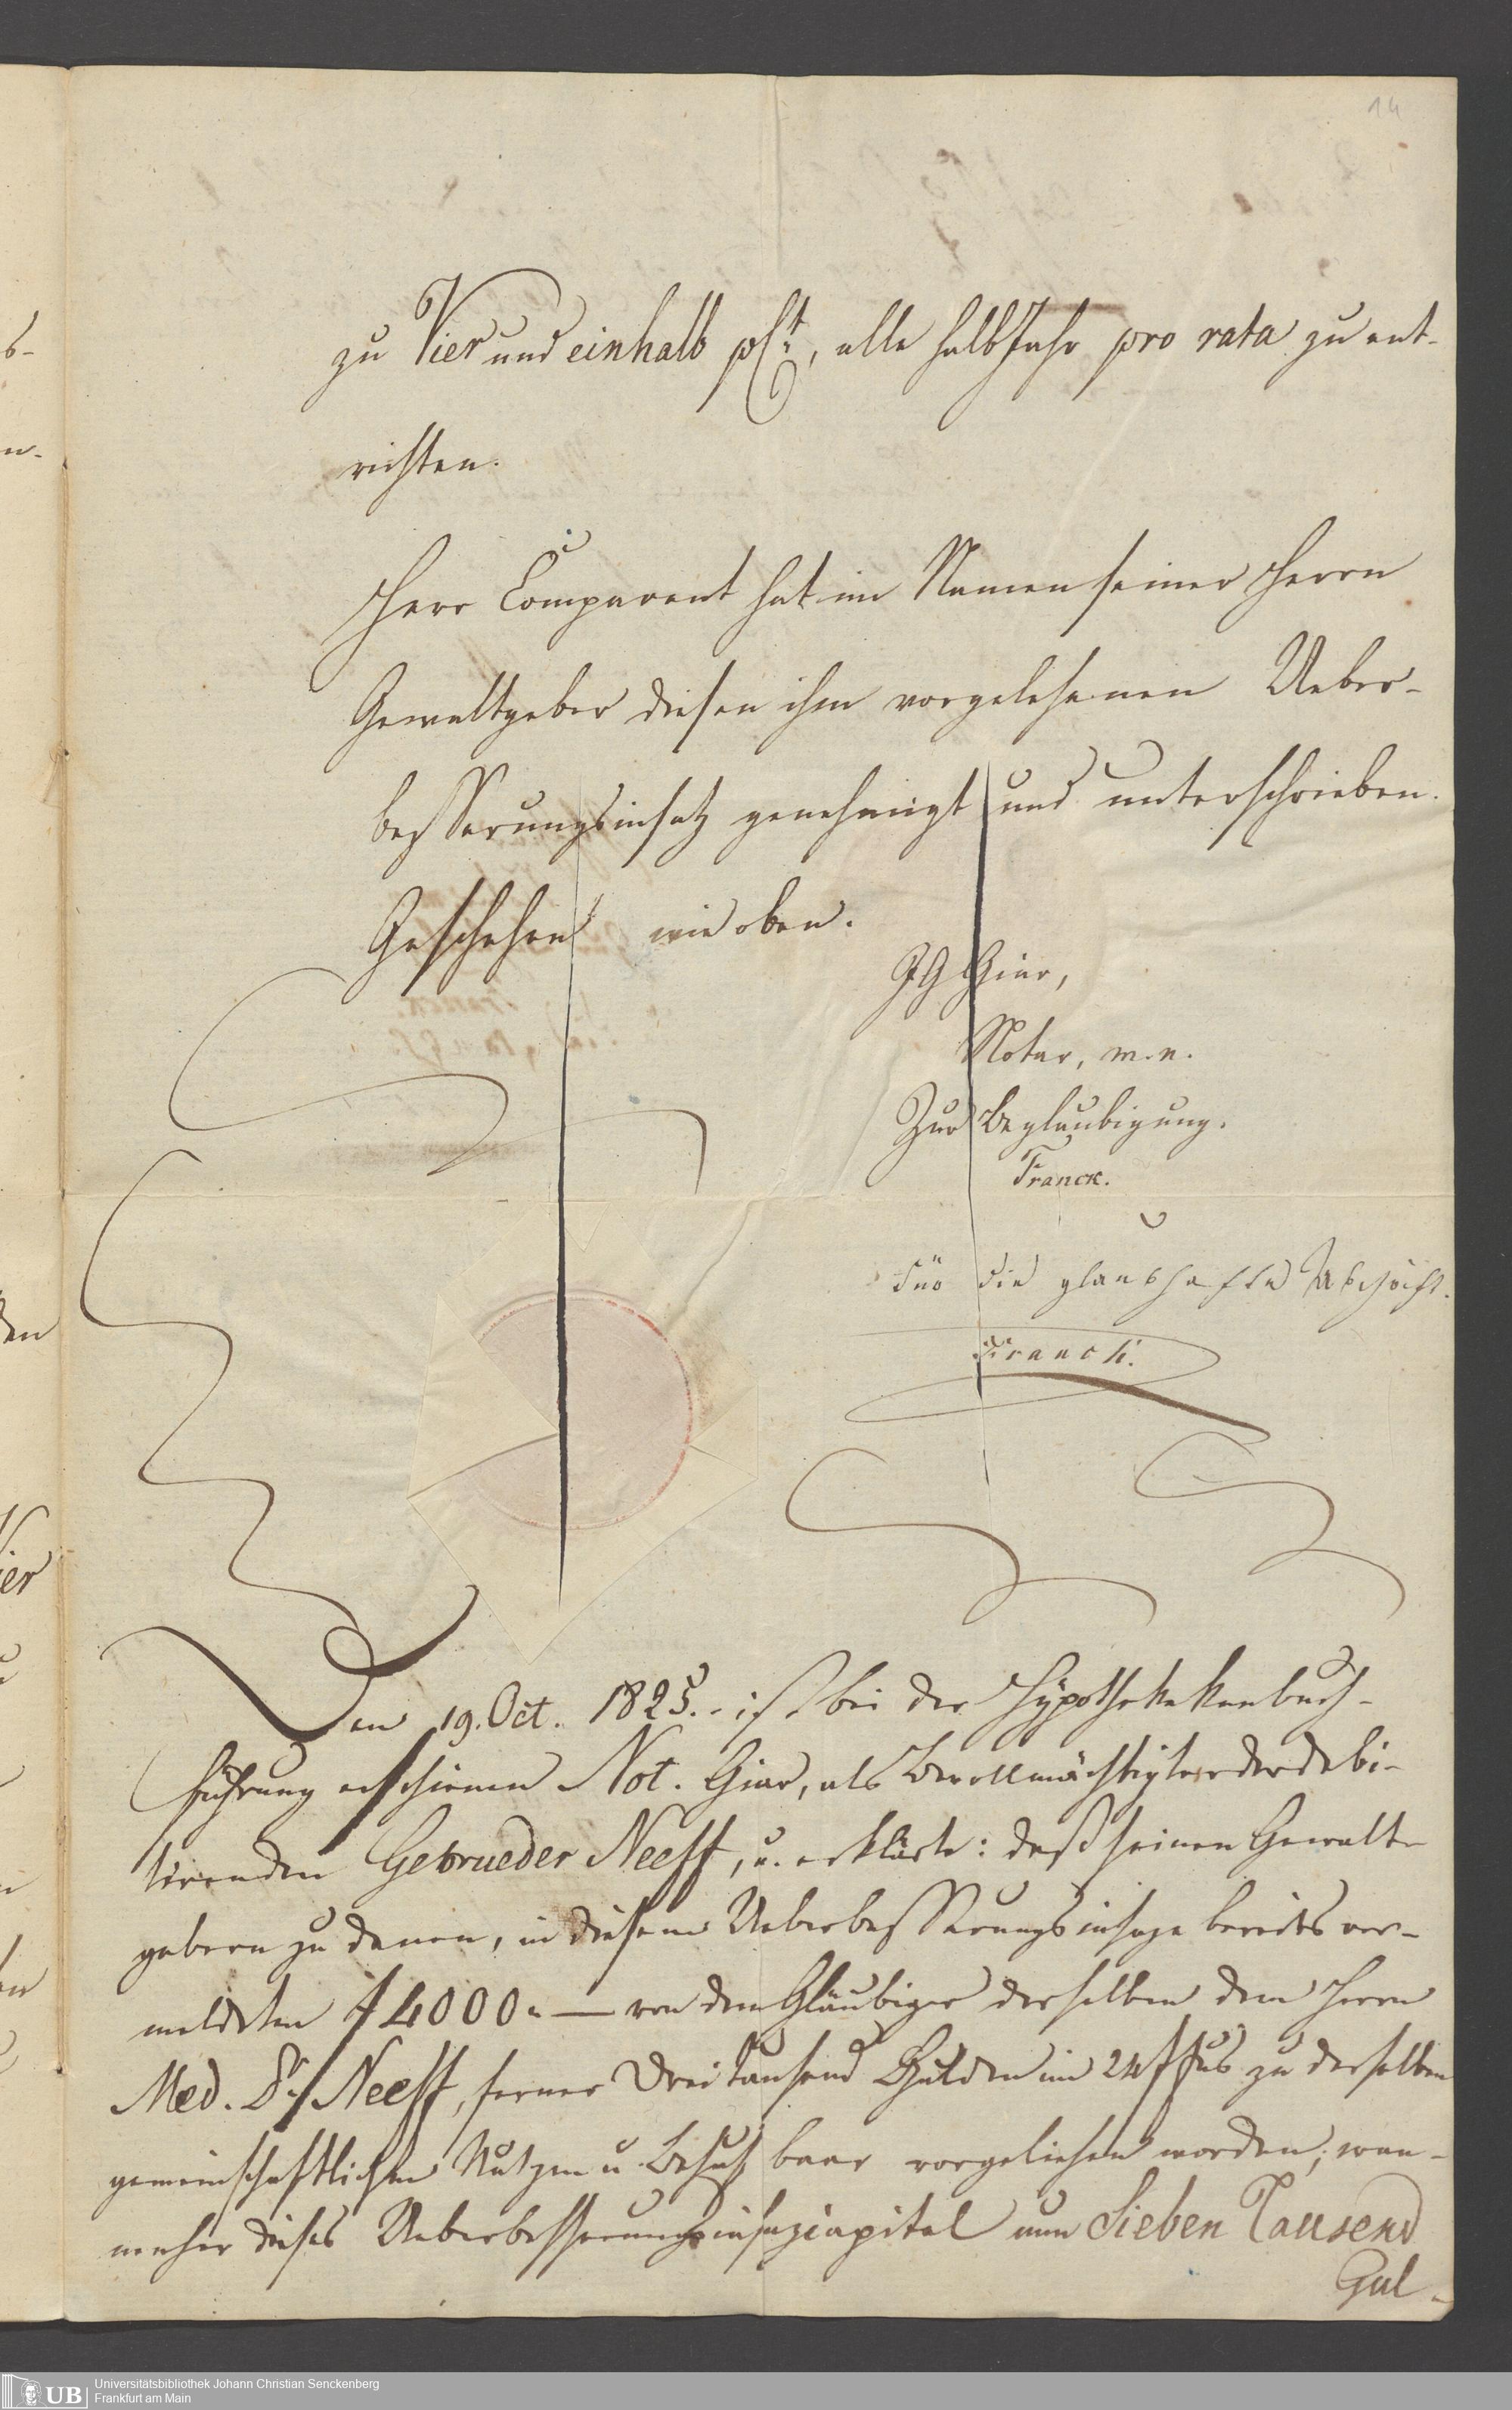 14
zu Vier und einhalb pCt, alle halb Jahr pro rata zu ent-
richten.
Herr Comparent hat im Namen seiner Herrn
Gewaltgeber diesen ihm vorgelesenen Ueber-
besserungsinsatz genehmigt und unterschrieben.
Geschehen wie oben.
Giar,
Notar, m. n.
Zur Beglaubigung.
Franck.
Für die glaubhafte Abschrift.
Franck.
Den 19. Oct. 1825. ist bei der Hypothekenbuch-
führung erschienen Not. Giar, als Bevollmächtigter der debi-
tirenden Gebrueder Neeff, u. erklärte: daß seinen Gewalt-
gebern zu denen, in diesem Ueberbesserungsinsaze bereits ver-
meldeten f 4000. — von dem Gläubiger derselben dem Herrn
Med. Dr. Neeff, ferner Drei Tausend Gulden im 24 f Fus zu derselben
gemeinschaftlichen Nutzen u. Behuf baar vorgeliehen worden; wan-
nenher dieses Ueberbesserungsinsazcapital nun Sieben Tausend
Gul-
UB
Universitätsbibliothek Johann Christian Senckenberg
Frankfurt am Main